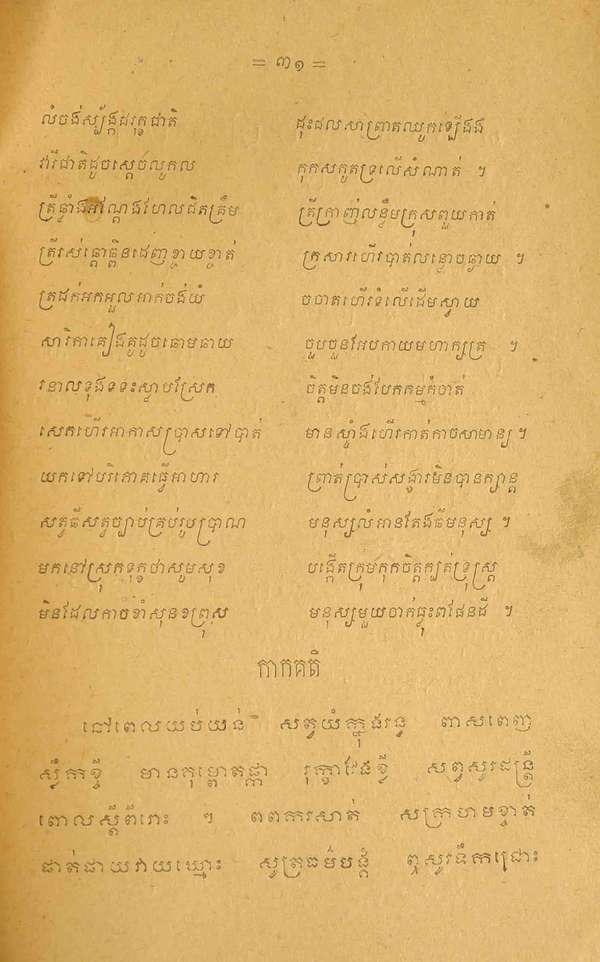 = ៣១ =
លំចង់ស្ប័ង្កដរុក្ខជាតិ ដុះដលសាព្រាតឈូកឡើងង
វារីជាតិដូចស្ដេចលួកល កុកសកូតទ្រលើសំណាត់ ។
ត្រីឆ្លាំងអណ្ដែងហែលជិតគ្រឹម ត្រីក្រាញ់លន្ទឹមក្រុសពួយកាត់
ត្រីរស់ផ្ដោផ្ដិនដេញខ្វាយខ្វាត់ ក្រសារហើរបាត់លន្លោចឆ្ងាយ ។
ត្រដក់អកអួលអាក់ចង់យំ ចចាតហើរទំលើដើមស្វាយ
សារិកាគៀងគូដូចឆោមឆាយ ចួបចួនកែបកាយមហាក្សត្រ ។
រនាលទុងទទះស្លាបស្រែក ចិត្តមិនចង់បែកកម្មកំចាត់
សេកហើរអាកាសប្រាសទៅបាត់ មានស្ទាំងហើរកាត់កាចសាមាន្យ ។
យកទៅបរិភោគធ្វើអាហារ ព្រាត់ប្រាស់សង្ខារមិនបានក្សាន្ត
សត្វធីសត្វច្បាប់គ្រប់រូបប្រាណ មនុស្សលំអានតែងធីមនុស្ស ។
មកនៅស្រុកទុក្ខថាសួមសុខ បង្កើតក្រុមកុកចិត្តក្បត់ទ្រុស្ត្រ
មិនដែលកាចខាំសុនខព្រុស មនុស្សមួយចាក់ធ្លុះពផែនដី ។
កាកគតិ
នៅពេលយប់យន់ សត្វយំក្នុងរន្ធ ពាសពេញ
ស្ទឹកខ្ចី មានកុម្ពោតផ្កា រុក្ខាវែងខ្វី សព្ទសូរដន្ត្រី
ពោលស្ដីពីរោះ ។ ពពករសាត់ សក្រហមខ្ចាត់
ផាត់ផាយវាយឃ្មោះ សូត្រធម៌បង្គំ ឮសូរទឹកជ្រោះ